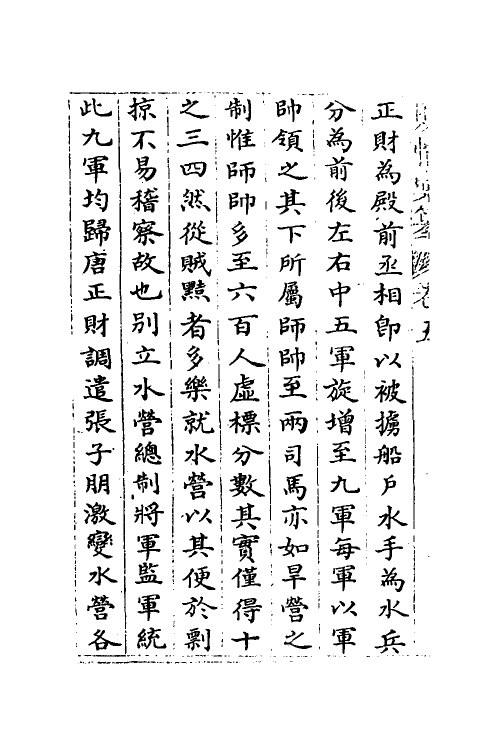 正財為殿前丞相即以被擄船戶水手為水兵
分為前後左右中五軍旋增至九軍每軍以軍
帥領之其下所屬師帥至兩司馬亦如旱營之
制惟師帥多至六百人虛標分數其實僅得十
之三四然從賊黠者多樂就水營以其便於剽
掠不易稽察故也別立水營總制將軍監軍統
此九軍均歸唐正財調遣張子朋激變水營各